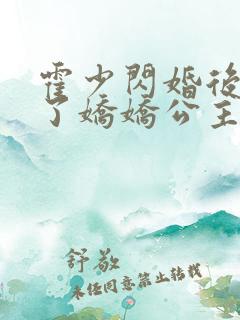 霍少閃婚後
了嬌嬌公主
舒敬
未經同意禁止轉載